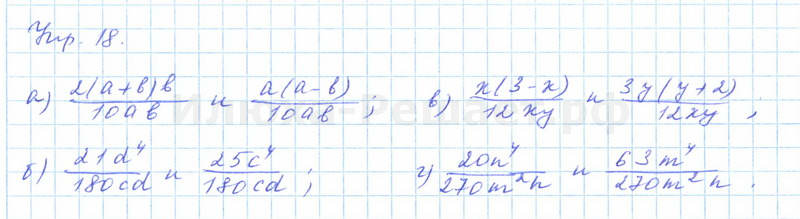 Упр. 18.
а) 2(a+b)b/10ab и a(a-b)/10ab; в) x(3-x)/12xy и 3y(y+2)/12xy;
б) 21d⁴/180cd и 25c⁴/180cd; г) 20n⁴/270m²n и 63m⁴/270m²n.